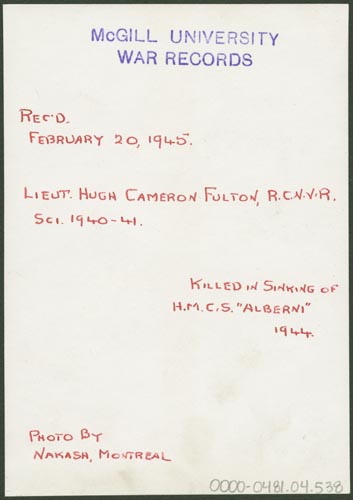 McGILL UNIVERSITY
WAR RECORDS
REC'D.
FEBRUARY 20, 1945.
LIEUT. HUGH CAMERON FULTON, R.C.N.V.R.
SCI. 1940-41.
KILLED IN SINKING OF
H.M.C.S. "ALBERNI"
1944.
PHOTO BY
NAKASH, MONTREAL
0000-0481.04.538